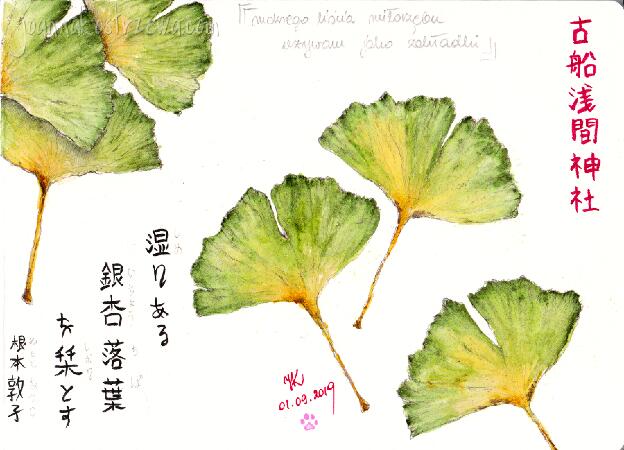 「mokrego liścia miłorzębu
używam jako zakładki」
古船浅間神社
湿りある
銀杏落葉
を栞とす
根本敦子
01.09.2019